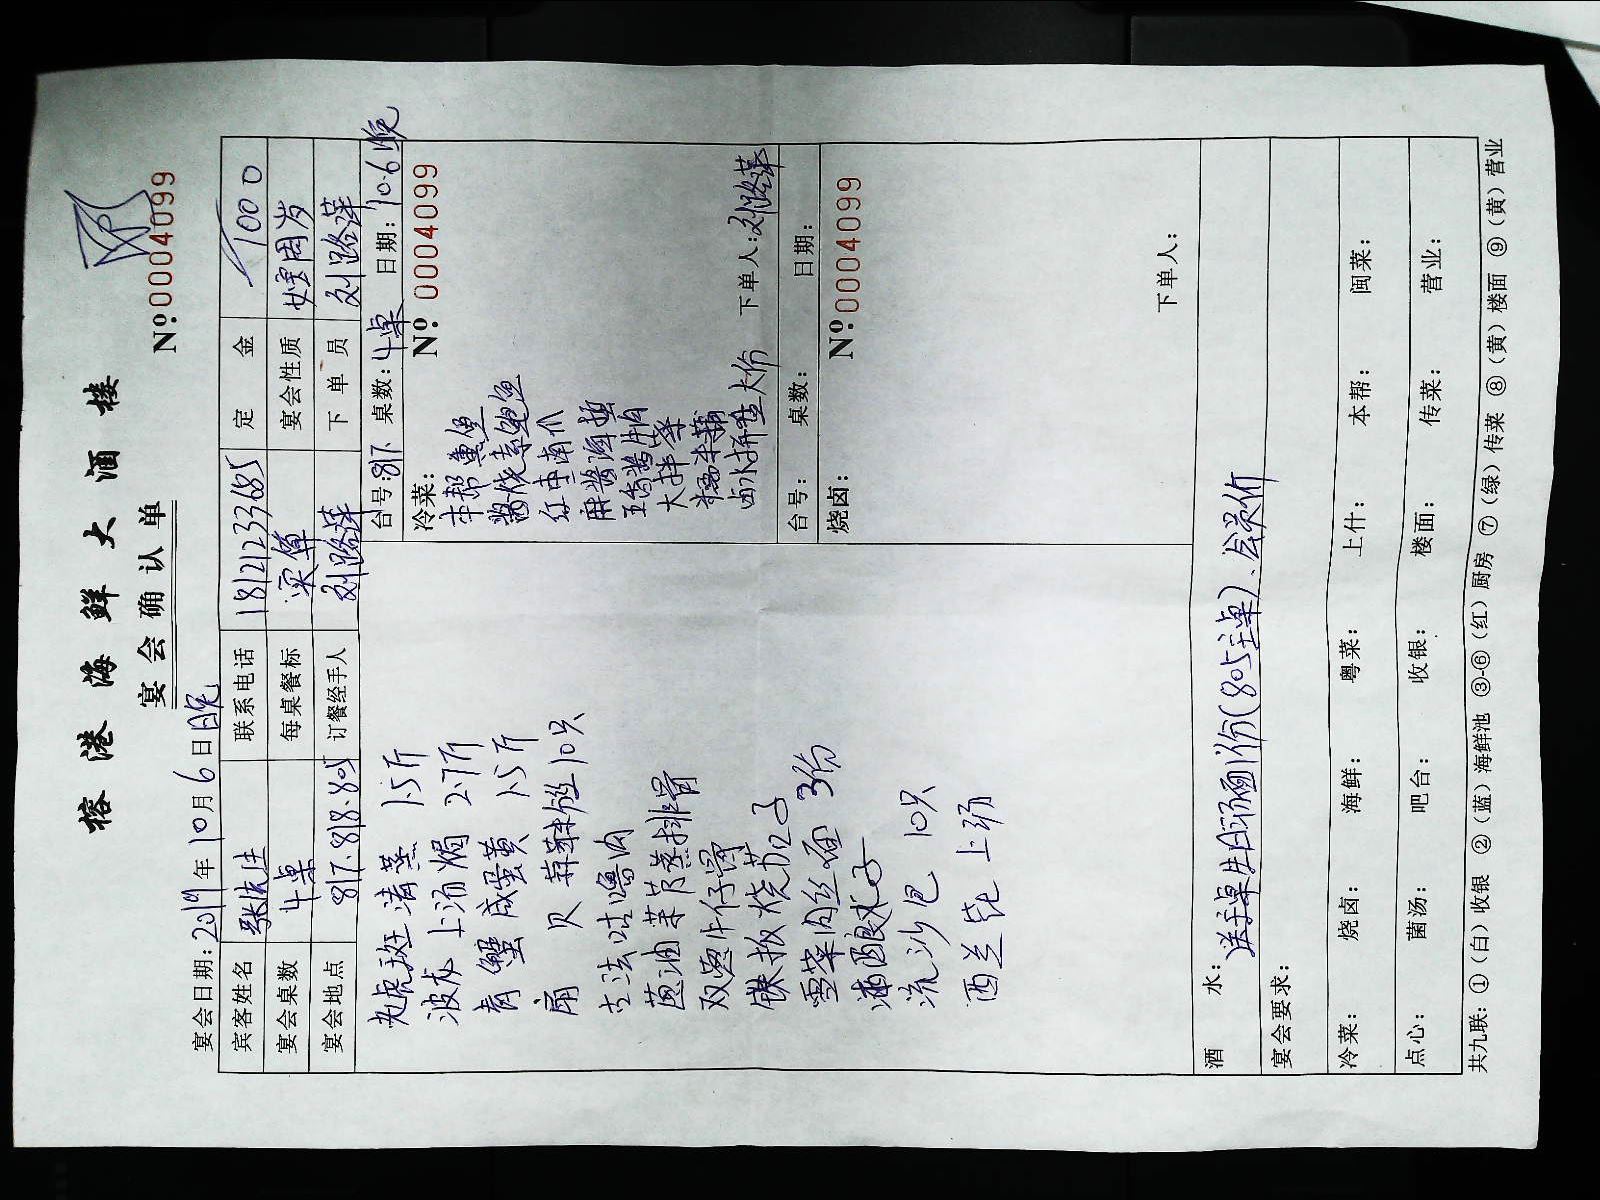 榕港海鲜大酒楼
宴会确认单
Nº:0004099
宴会日期:2019年10月6日晚
宾客姓名 张先生 联系电话 18121233685 定金 1000
宴会桌数 4桌 每桌餐标 宴会性质 周岁
宴会地点 817.818.805 订餐经手人 刘路萍 下单员 刘路萍
老虎斑 清蒸 1.5斤
波龙 上汤焗 2.7斤
青蟹 咸蛋黄 1.5斤
扇贝 蒜蓉粉丝 10只
古法咕噜肉
葱油茉芋蒸排骨
双椒牛仔骨
铁板烧
雪菜肉丝面 3份
流沙包 10只
西兰花 上汤
台号:817 桌数:4桌 日期:10.6晚
冷菜:
Nº:0004099
本帮熏鱼
酱烧素鲍鱼
红枣南瓜
麻酱海蜇
五香酱牛肉
大拌菜
卤水拼盘 大份
下单人:刘路萍
台号: 桌数: 日期:
烧卤:
Nº:0004099
下单人:
酒水: 送主桌生日汤面1份(805主桌)、会员价
宴会要求:
冷菜: 烧卤: 海鲜: 粤菜: 上什: 本帮: 闽菜:
点心: 菌汤: 吧台: 收银: 楼面: 传菜: 营业:
共九联:①(白)收银 ②(蓝)海鲜池 ③-⑥(红)厨房 ⑦(绿)传菜 ⑧(黄)楼面 ⑨(黄)营业